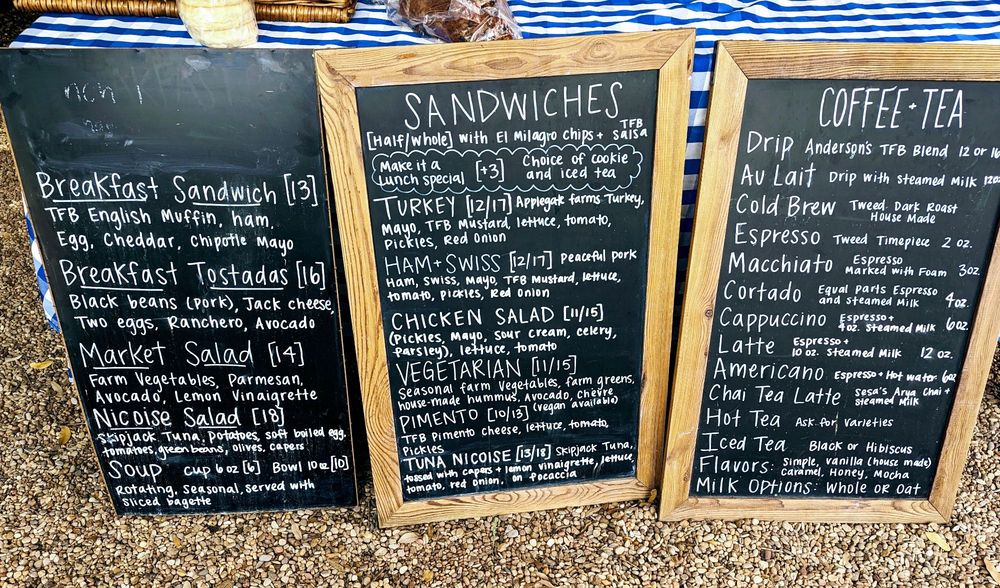 Breakfast Sandwich [13]
TFB English Muffin, ham,
Egg, Cheddar, Chipotle Mayo
Breakfast Tostadas [16]
Black beans (pork), Jack cheese,
Two eggs, Ranchero, Avocado
Market Salad [14]
Farm Vegetables, Parmesan,
Avocado, Lemon Vinaigrette
Nicoise Salad [18]
Skipjack Tuna, potatoes, soft boiled egg,
tomatoes, green beans, olives, capers
Soup Cup 6 oz [6] Bowl 10 oz [10]
Rotating, Seasonal, served with
sliced baguette
SANDWICHES
[Half/whole] with El Milagro chips + TFB salsa
Make it a Lunch special [+3] Choice of cookie and iced tea
TURKEY [12/17] Applegate farms Turkey,
Mayo, TFB Mustard, lettuce, tomato,
Pickles, Red Onion
HAM + SWISS [12/17] Peaceful pork
Ham, swiss, Mayo, TFB Mustard, lettuce,
tomato, pickles, Red Onion
CHICKEN SALAD [11/15]
(Pickles, Mayo, sour cream, celery,
parsley), lettuce, tomato
VEGETARIAN [11/15]
Seasonal farm vegetables, farm greens,
house-made hummus, Avocado, chevre
(vegan available)
PIMENTO [10/13]
TFB Pimento cheese, lettuce, tomato,
Pickles
TUNA NICOISE [13/18] Skipjack Tuna,
tossed with capers + lemon vinaigrette, lettuce,
tomato, red onion, on focaccia
COFFEE + TEA
Drip Anderson's TFB Blend 12 or 16
Au Lait Drip with Steamed Milk 12oz
Cold Brew Tweed Dark Roast
House Made
Espresso Tweed Timepiece 2 oz.
Macchiato Espresso Marked with Foam 3oz
Cortado Equal parts Espresso and Steamed Milk 4oz.
Cappuccino Espresso + 4oz. Steamed Milk 6oz.
Latte Espresso + 10 oz. Steamed Milk 12 oz.
Americano Espresso + Hot water 6oz
Chai Tea Latte Sesa's Arya Chai + Steamed Milk
Hot Tea Ask for Varieties
Iced Tea Black or Hibiscus
Flavors: Simple, vanilla (house made)
Caramel, Honey, Mocha
Milk Options: Whole or Oat